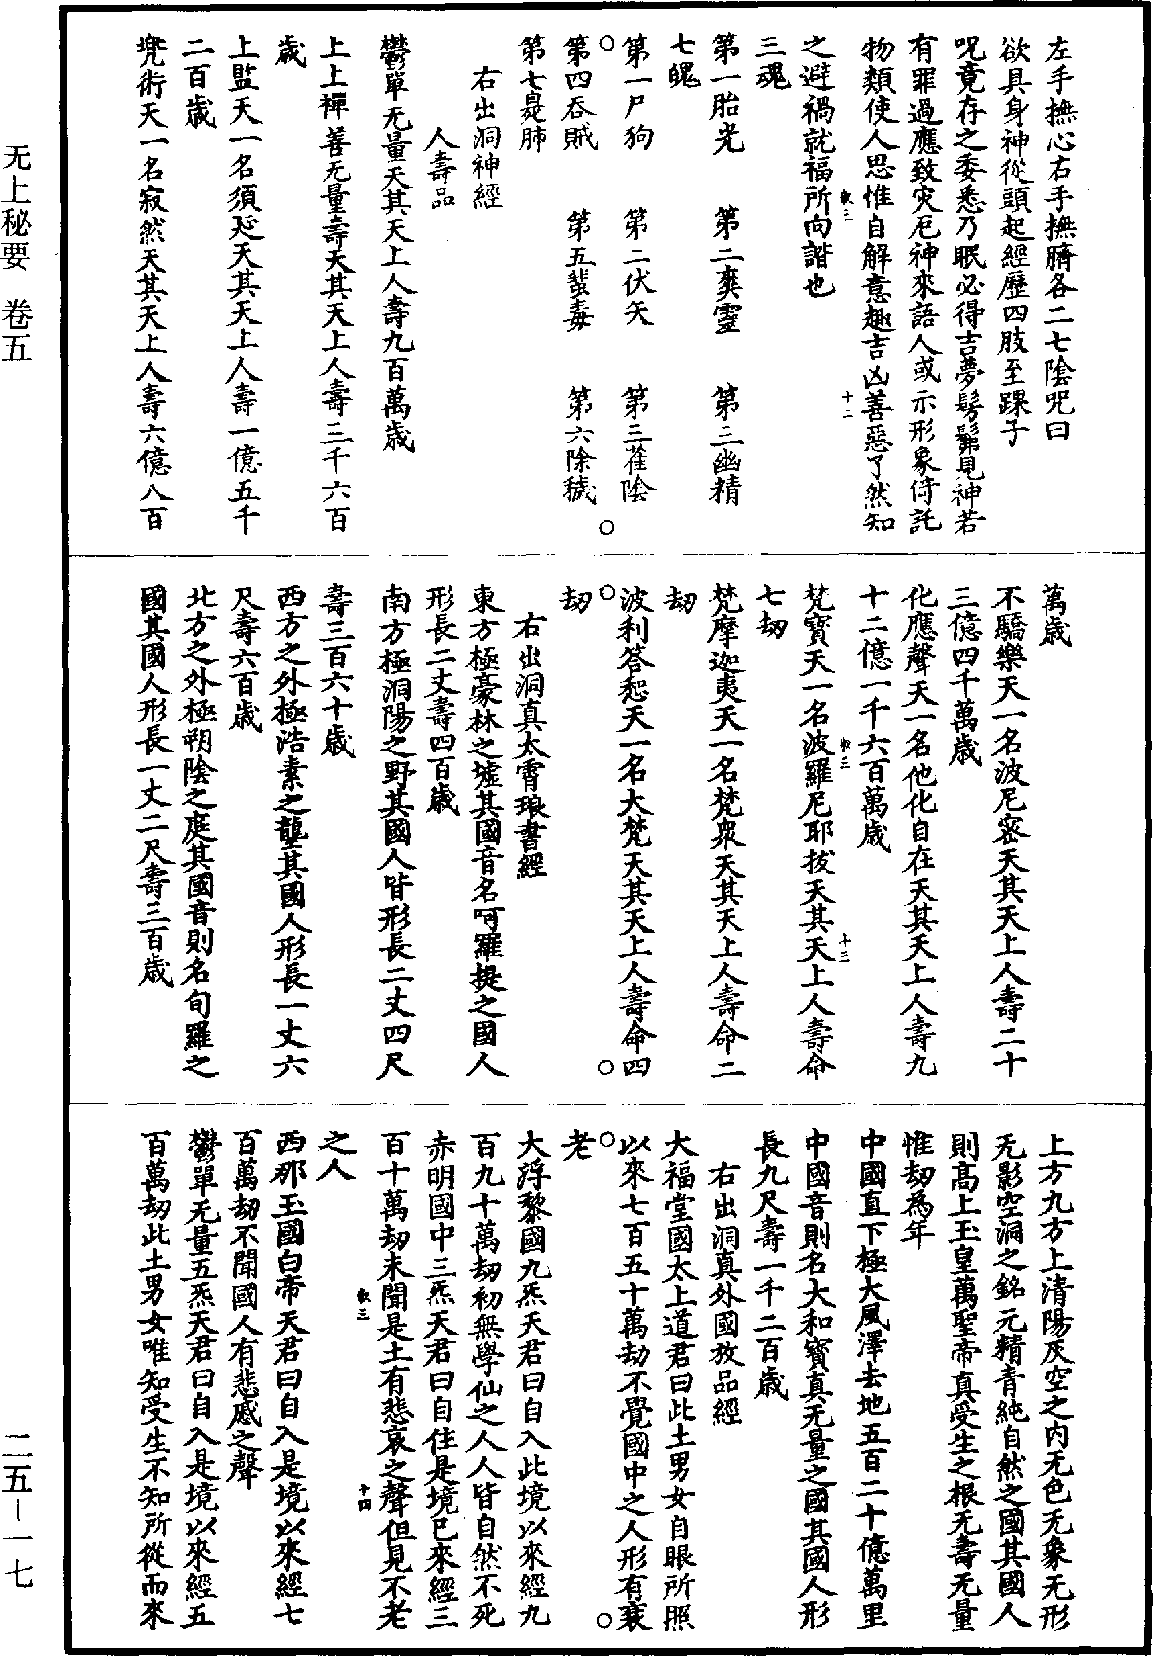 左手撫心右手撫臍各二七陰咒曰
欲具身神從頭起經歷四肢至踝子
咒竟存之委悉乃眠必得吉夢髣髴見神若
有罪過應致灾厄神來語人或示形象倚託
物類使人思惟自解意趣吉凶善惡了然知
之避禍就福所向諧也
三魂
第一胎光　第二爽靈　第三幽精
七魄
第一尸狗　第二伏矢　第三雀陰
第四吞賊　第五蜚毒　第六除穢
第七臭肺
右出洞神經
人壽品
鬱單无量天其天上人壽九百萬歲
上上禪善无量壽天其天上人壽三千六百
歲
上監天一名須延天其天上人壽一億五千
二百歲
兠術天一名寂然天其天上人壽六億八百
萬歲
不驕樂天一名波尼密天其天上人壽二十
三億四千萬歲
化應聲天一名他化自在天其天上人壽九
十二億一千六百萬歲
梵寶天一名波羅尼耶拔天其天上人壽命
七劫
梵摩迦夷天一名梵衆天其天上人壽命二
劫
波利答惒天一名大梵天其天上人壽命四
劫
右出洞真太霄琅書經
東方極豪林之墟其國音名呵羅提之國人
形長二丈壽四百歲
南方極洞陽之野其國人皆形長二丈四尺
壽三百六十歲
西方之外極浩素之壟其國人形長一丈六
尺壽六百歲
北方之外極朔陰之庭其國音則名旬羅之
國其國人形長一丈二尺壽三百歲
上方九方上清陽及空之内无色无象无形
无影空洞之銘元精青純自然之國其國人
則高上玉皇萬聖帝真受生之根无壽无量
惟劫為年
中國直下極大風澤去地五百二十億萬里
中國音則名大和寶真无量之國其國人形
長九尺壽一千二百歲
右出洞真外國放品經
大福堂國太上道君曰此土男女自眼所照
以來七百五十萬劫不覺國中之人形有衰
老
大浮黎國九炁天君曰自入此境以來經九
百九十萬劫初無學仙之人人皆自然不死
赤明國中三炁天君曰自住是境已來經三
百十萬劫未聞是土有悲哀之聲但見不老
之人
西那玉國白帝天君曰自入是境以來經七
百萬劫不聞國人有悲慼之聲
鬱單无量五炁天君曰自入是境以來經五
百萬劫此土男女唯知受生不知所從而來
十二
十三
十四
无上秘要　卷五
二五－一七